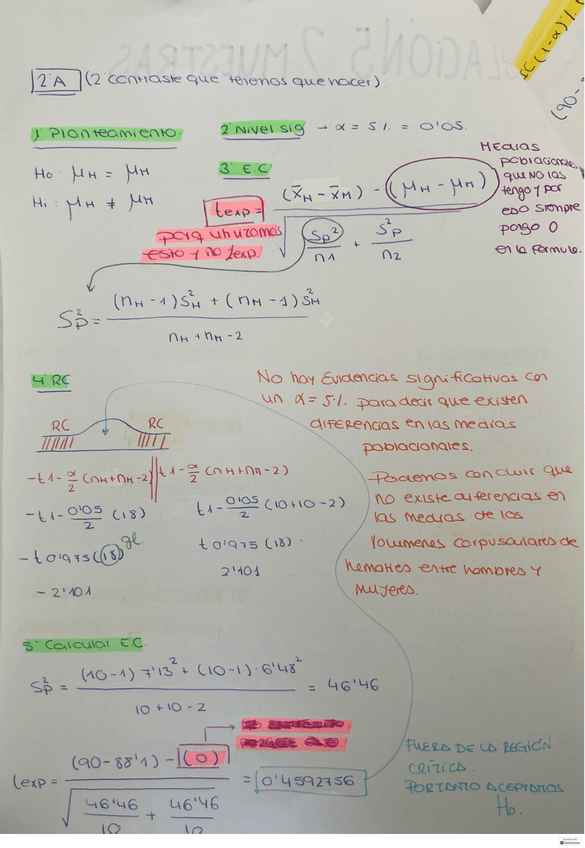 RELACIÓN 5 2 MUESTRAS
IC (1-α)%
(90-
2ºA (2º contraste que tenemos que hacer).
1º Planteamiento
2º Nivel sig → α = 5% = 0'05.
H0: μH = μM
Hi: μH ≠ μM
3º E.C
texp = (x̄H - x̄M) - (μH - μM) / √(Sp²/n1 + S²p/n2)
Medias
poblacionales
que no las
tengo y por
eso siempre
pongo 0
en la formula.
para uh uzamos
esto y no Zexp.
S²p = (nH-1)S²H + (nM-1)S²M / nH + nM - 2
4º RC
RC RC
-t1-α/2 (nH+nM-2) || t1-α/2 (nH+nM-2)
-t1-0'05/2 (18) t1-0'05/2 (10+10-2)
-t0'975(18) gl t0'975(18).
-2'101 2'101
No hay Evidencias significativas con
un α= 5%. para decir que existen
diferencias en las medias
poblacionales.
Podemos concluir que
no existe diferencias en
las medias de los
Volumenes corpusculares de
hematies entre hombres y
mujeres.
5º Calcular EC.
S²p = (10-1) 7'13² + (10-1)·6'48² / 10+10-2 = 46'46
texp = (90-88'1) - (0) / √(46'46/10 + 46'46/10) = 0'4592756
FUERA DE LA REGIÓN
CRÍTICA.
POR TANTO ACEPTAMOS
H0.